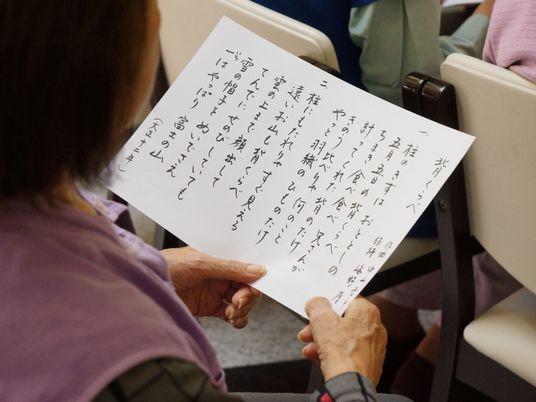 背くらべ
作曲 中
作詞 海野 厚
一、柱のきずは おととしの
五月五日の 背くらべ
ちまき食べ食べ 兄さんが
計ってくれた 背のたけ
きのう比べりゃ 何のこと
やっと羽織の ひものたけ
二、柱にもたれりゃ すぐ見える
遠いお山も 背くらべ
雲の上まで 顔出して
てんでにせのび していても
雪の帽子を ぬいでさえ
一はやっぱり 富士の山
(大正十二年)